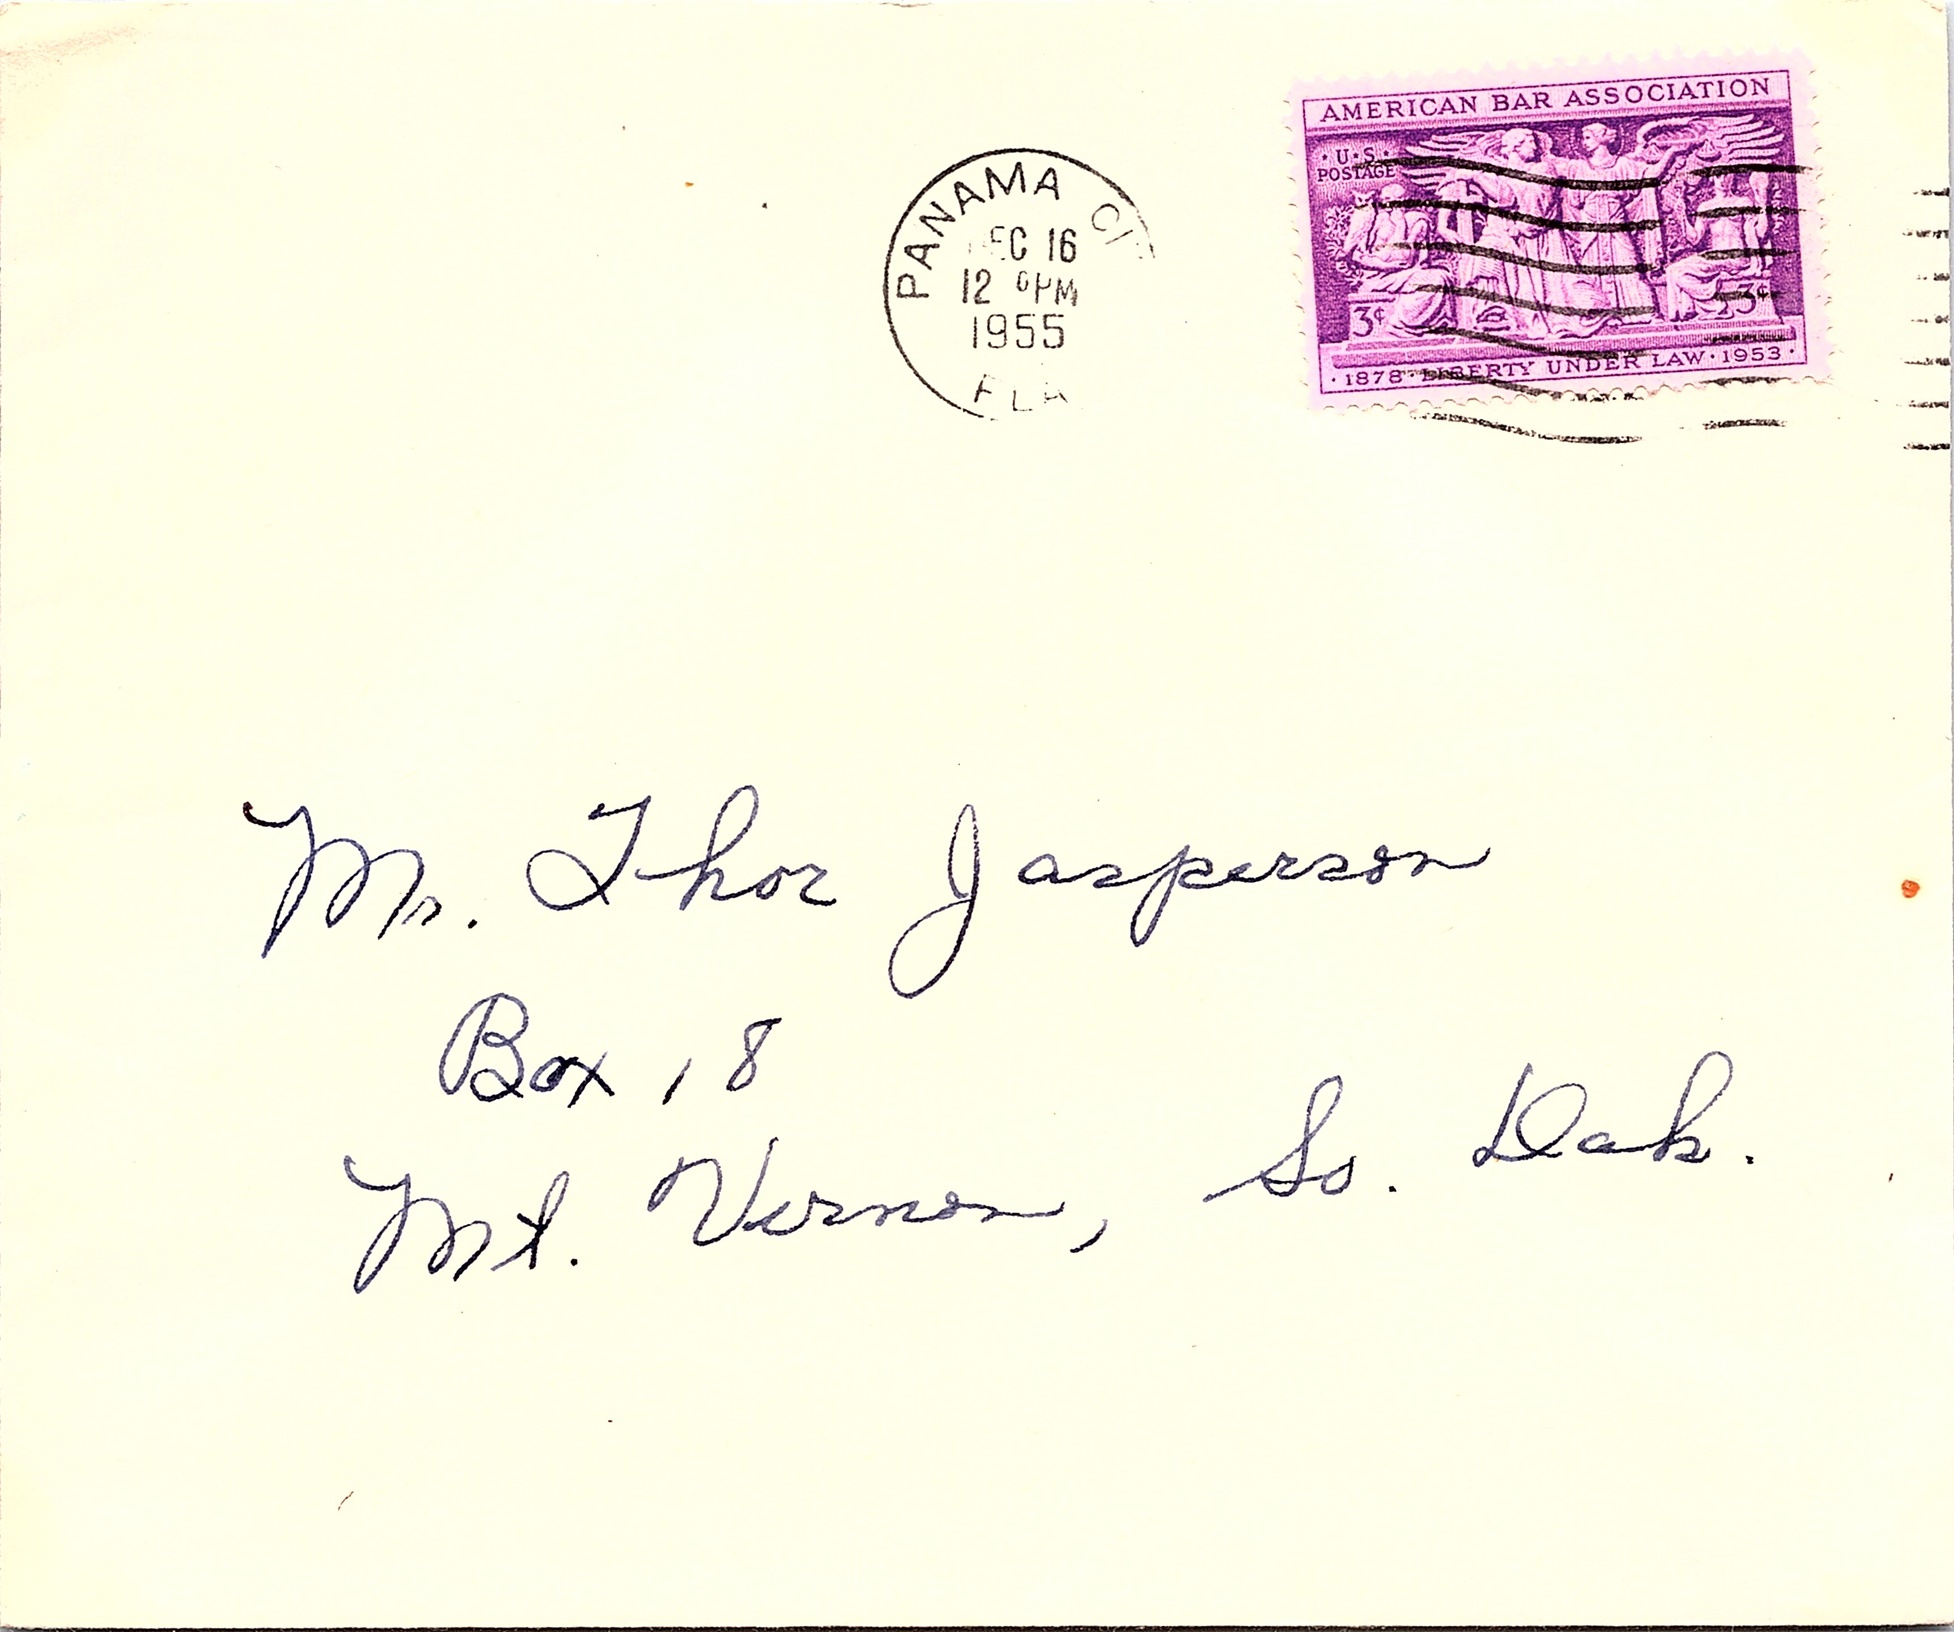 AMERICAN BAR ASSOCIATION
· U·S·
POSTAGE
3¢ 3¢
· 1878 · LIBERTY UNDER LAW · 1953 ·
PANAMA
16
12 PM
1955
FLA
Mr. Thor Jasperson
Box 18
Mt. Vernon, So. Dak.